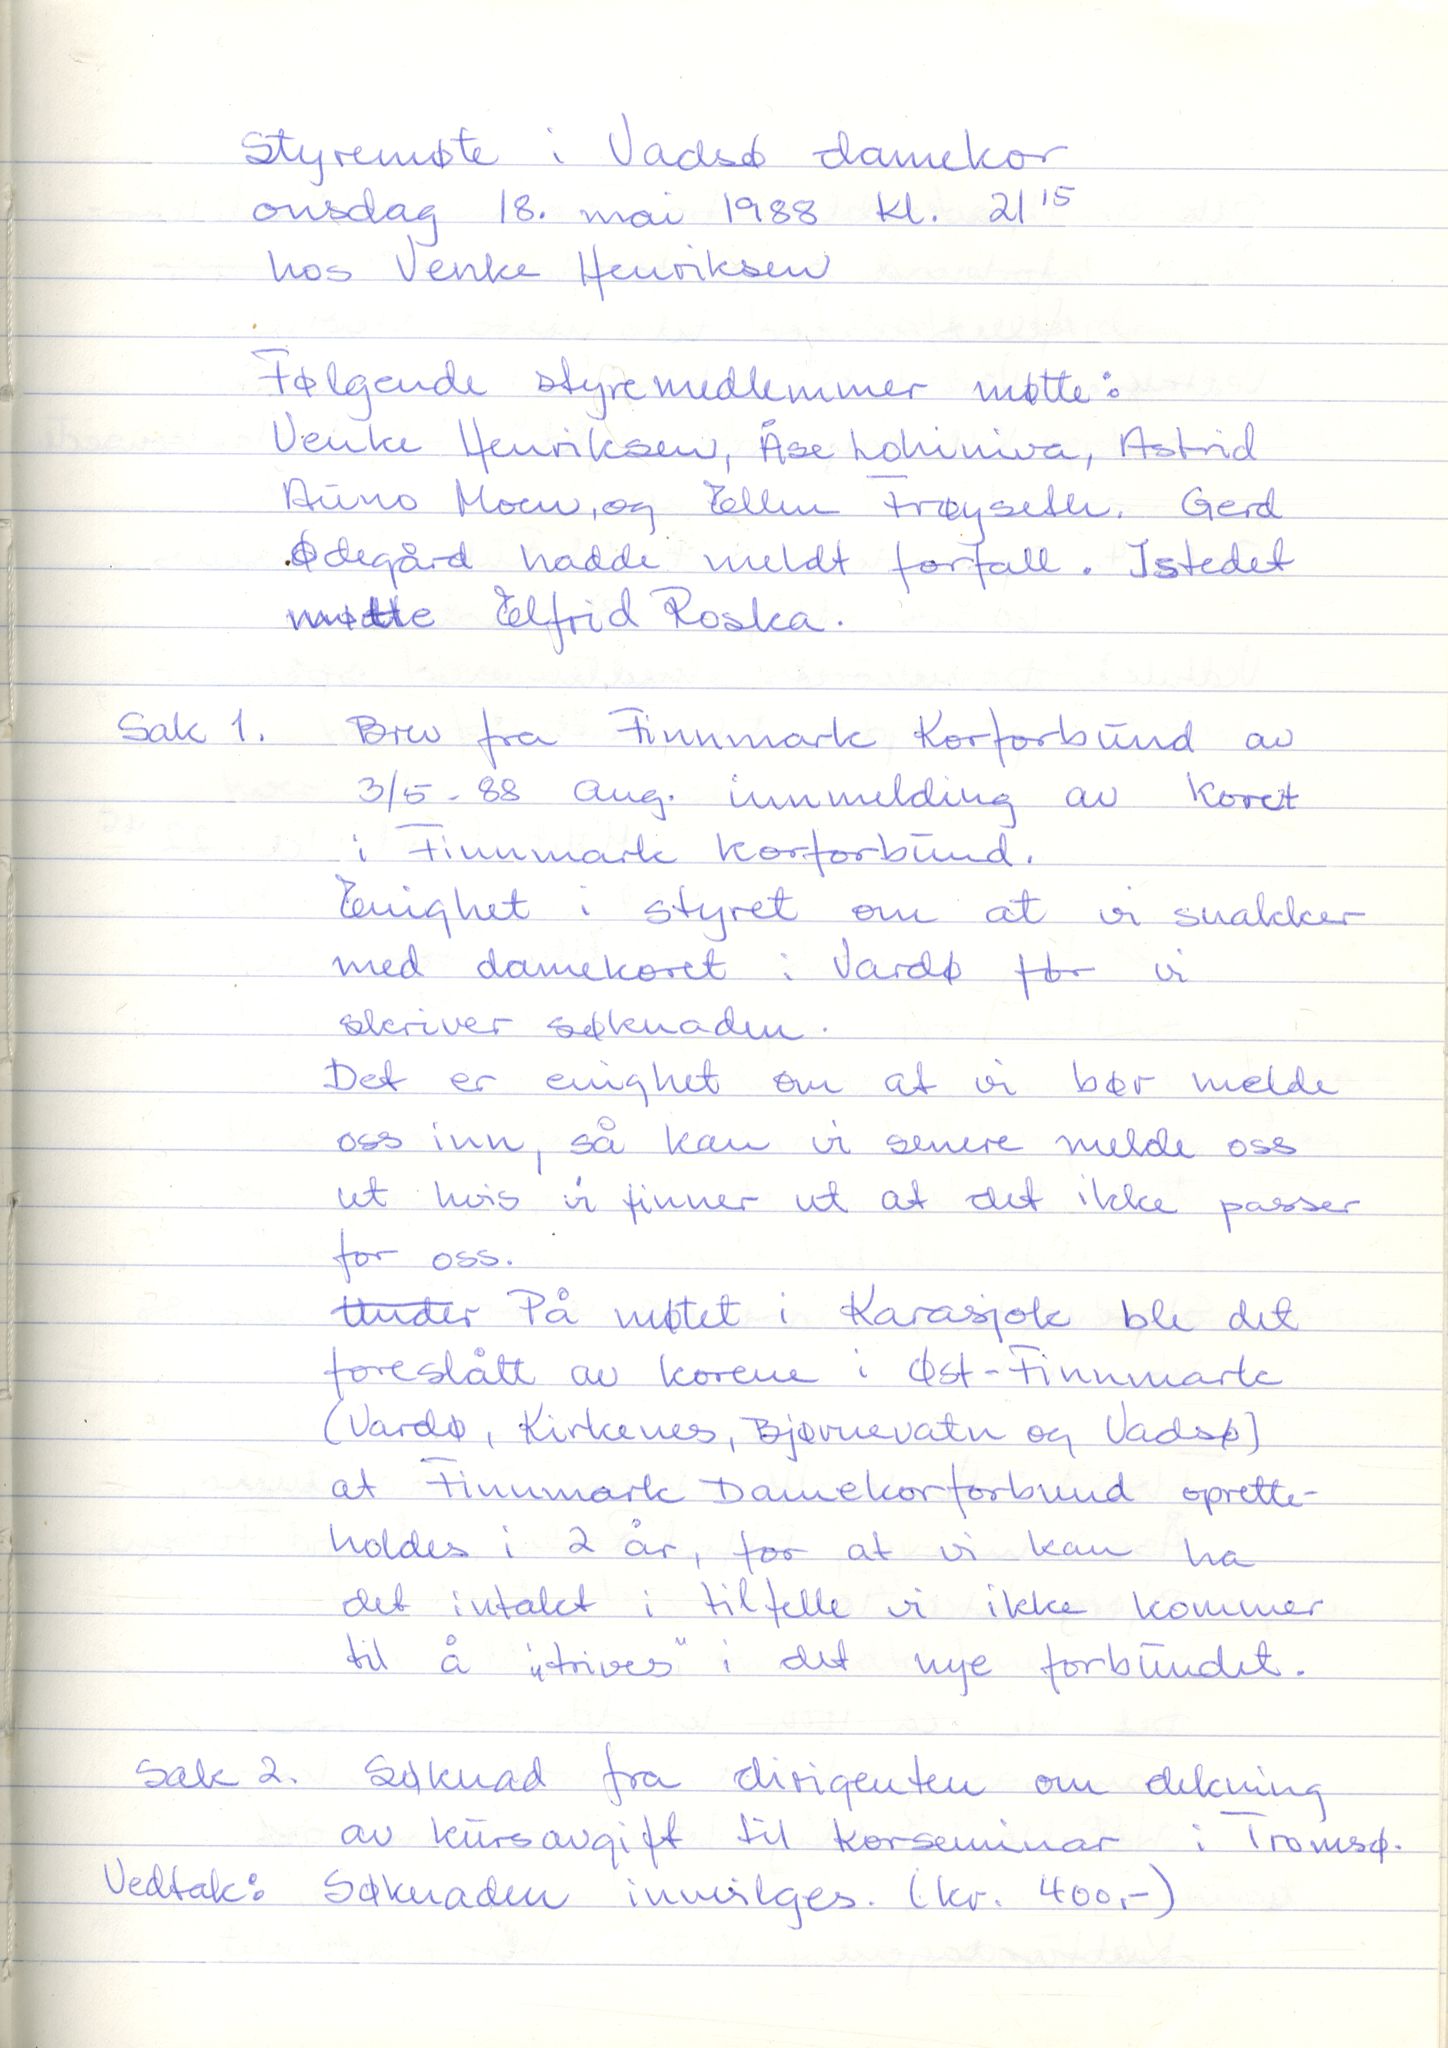 Styremøte i Vadsø damekor
onsdag 18. mai 1988 kl. 21 15
hos Venke Henriksen
Følgende styremedlemmer møtte:
Venke Henriksen, Åse Lohiniva, Astrid
Auno Moen, og Ellen Frøyseth. Gerd
Ødegård hadde meldt forfall. Istedet
møtte Elfrid Roska.
Sak 1. Brev fra Finnmark Korforbund av
3/5-88 ang. innmelding av koret
i Finnmark korforbund.
Enighet i styret om at vi snakker
med damekoret i Vardø før vi
skriver søknaden.
Det er enighet om at vi bør melde
oss inn, så kan vi senere melde oss
ut hvis vi finner ut at det ikke passer
for oss.
Under På møtet i Karasjok ble det
foreslått av korene i Øst-Finnmark
(Vardø, Kirkenes, Bjørnevatn og Vadsø)
at Finnmark Damekorforbund oprette-
holdes i 2 år, for at vi kan ha
det intakt i tilfelle vi ikke kommer
til å "trives" i det nye forbundet.
Sak 2. Søknad fra dirigenten om dekning
av kursavgift til korseminar i Tromsø.
Vedtak: Søknaden innvilges. (kr. 400,-)